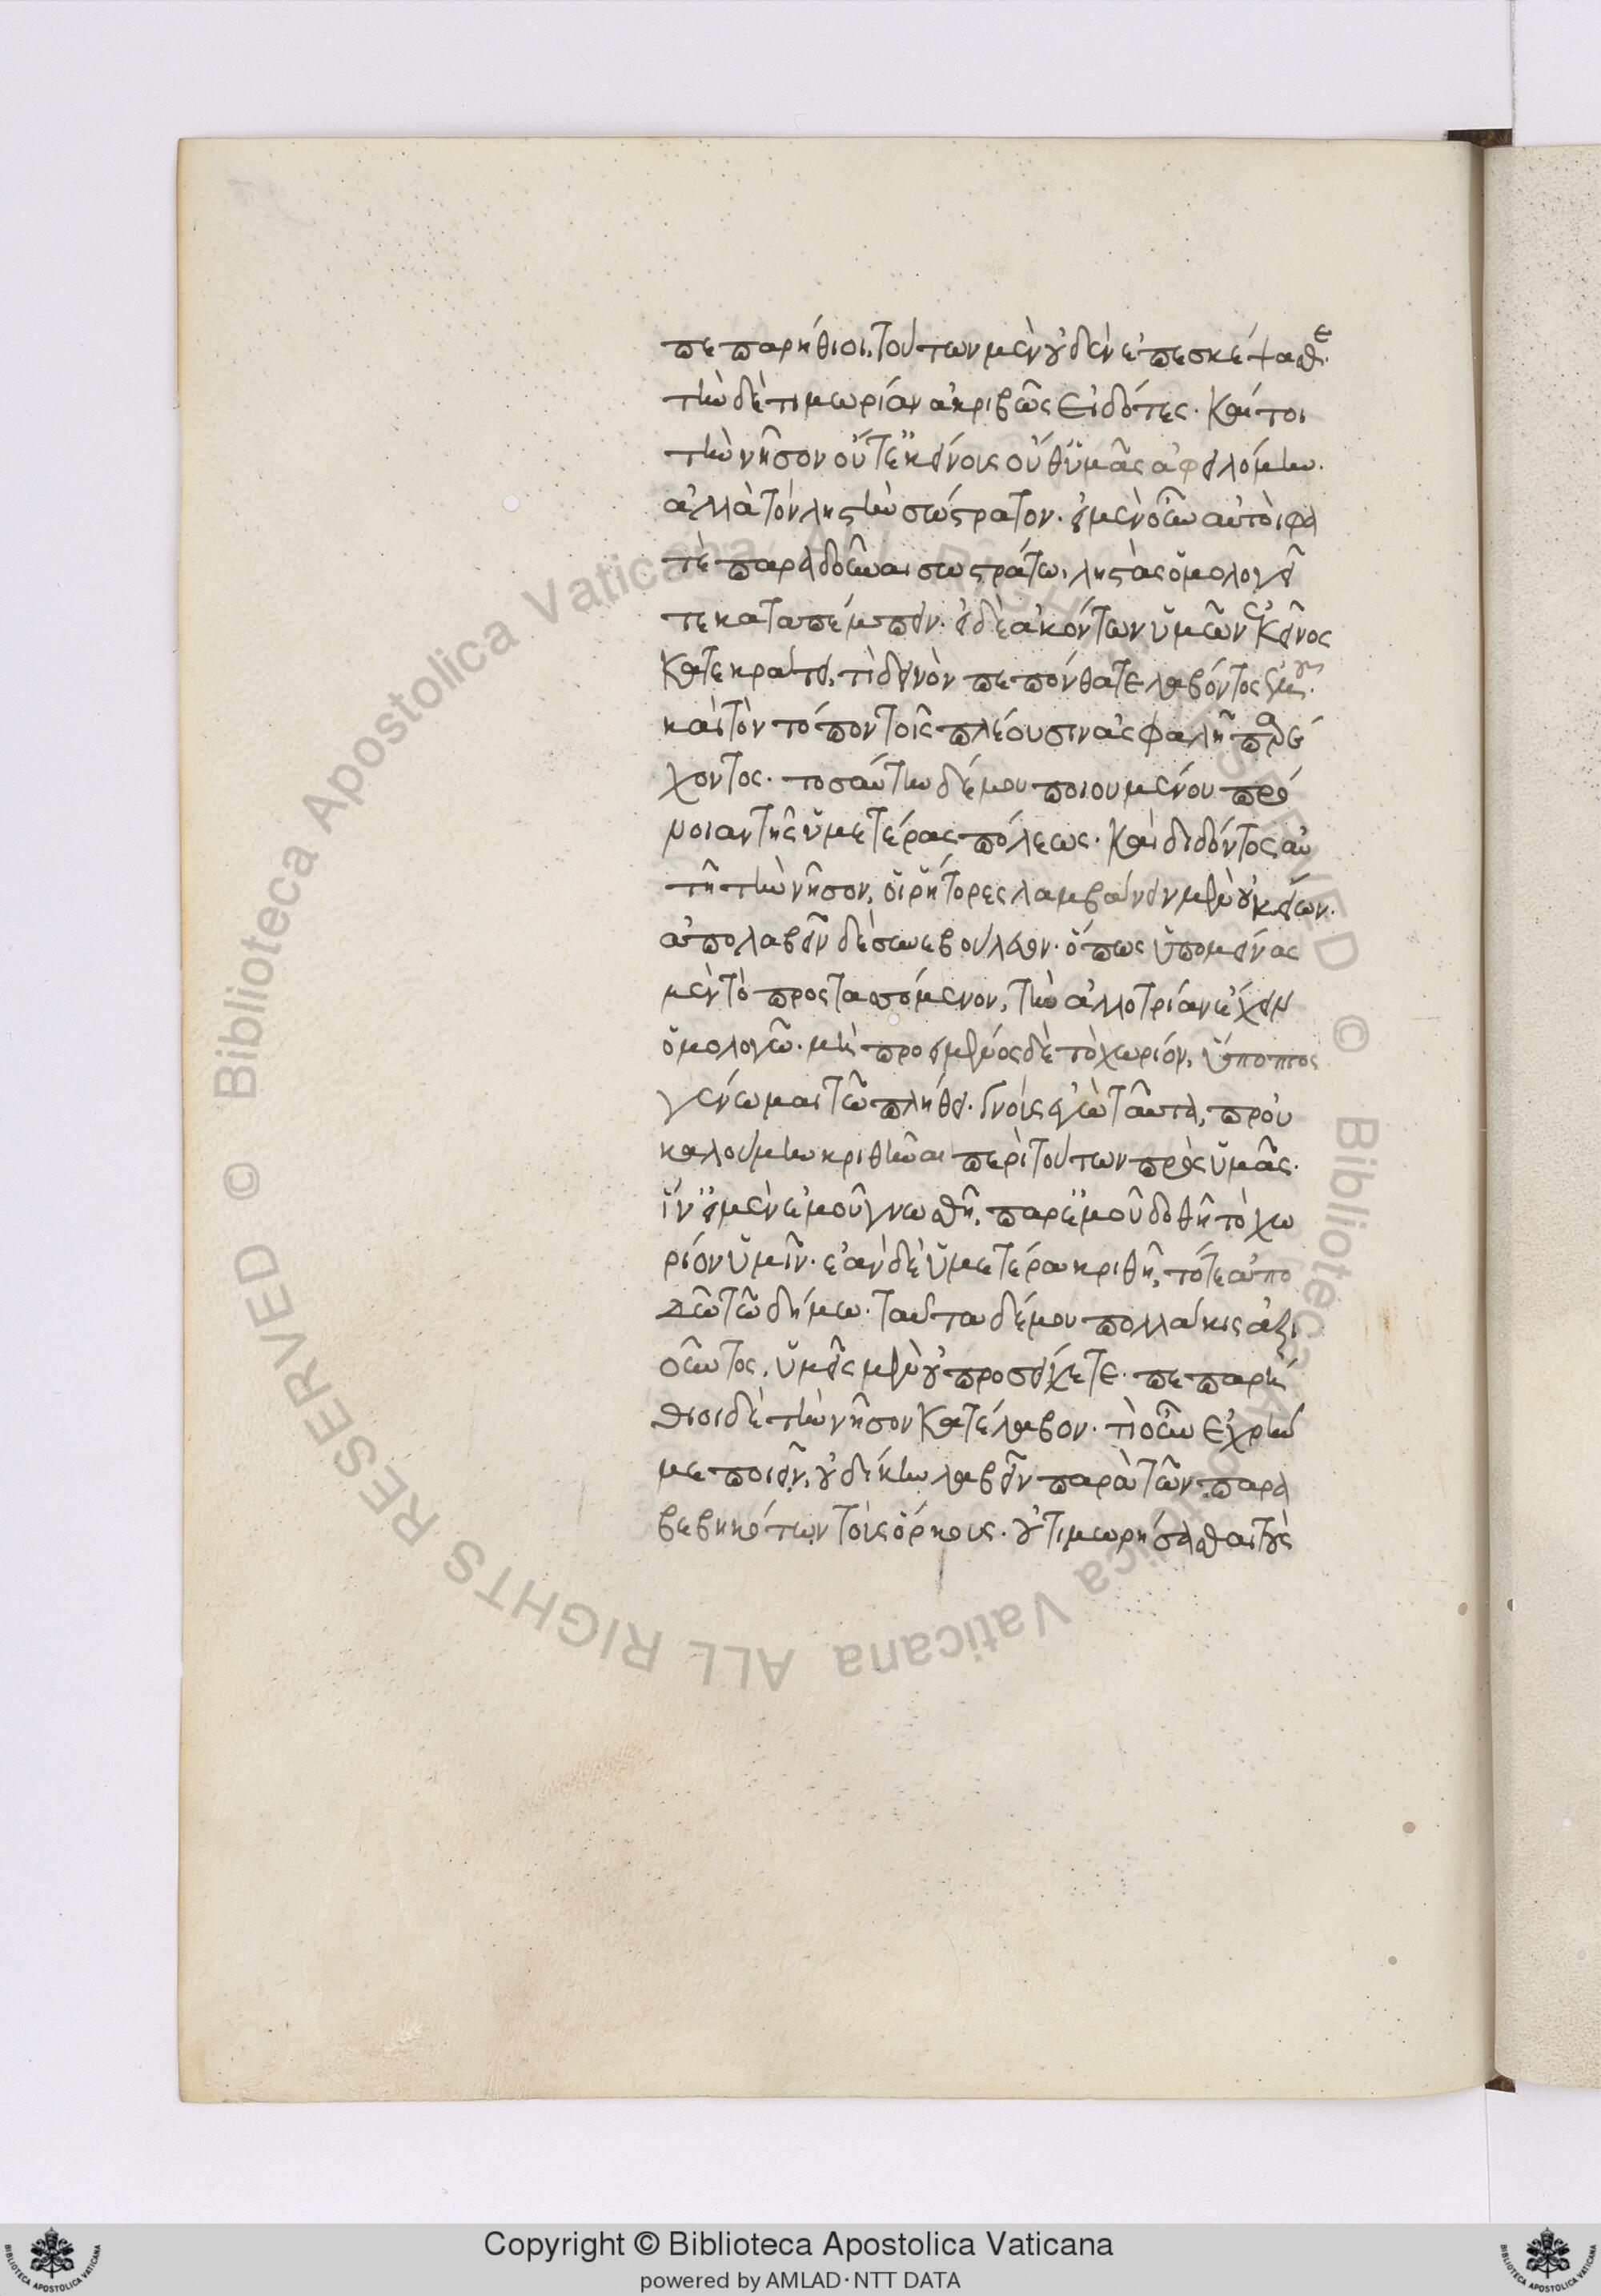 πεπαρήθιοι, τούτων μὲν οὐδὲν ἐπεσκέψασθε.
τὴν δὲ τιμωρίαν ἀκριβῶς εἰδότες. καί τοι
τὴν νῆσον οὔτ' ἐκείνοις οὔθ' ὑμᾶς ἀφειλόμην.
ἀλλὰ τὸν λῃστὴν σώστρατον. εἰ μὲν οὖν αὐτοί φα
τὲ παραδοῦναι σωστράτω, λῃστὰς ὁμολογεῖ
τε καταπέμπειν. εἰ δὲ ἀκόντων ὑμῶν ἐκεῖνος
κατεκράτει, τί δεινὸν πεπόνθατε λαβόντος ἐμοῦ.
καὶ τὸν τόπον τοῖς πλέουσιν ἀσφαλῆ παρέ
χοντος. τοσαύτην δέ μου ποιουμένου πρό
νοιαν τῆς ὑμετέρας πόλεως. καὶ διδόντος αὐ
τῇ τὴν νῆσον, οἱ ῥήτορες λαμβάνειν μὲν οὐκ εἴων.
ἀπολαβεῖν δὲ συνεβούλευον. ὅπως ὑπομείνας
μὲν τὸ προσταττόμενον, τὴν ἀλλοτρίαν ἔχειν
ὁμολογῶ. μὴ προέμενος δὲ τὸ χωρίον, ὕποπτος
γένωμαι τῶ πλήθει. γνοὺς ἐγὼ ταῦτα, προὐ
καλούμην κριθῆναι περὶ τούτων πρὸς ὑμᾶς.
ἵν' εἰ μὲν ἐμοῦ γνωσθῇ, παρ' ἐμοῦ δοθῇ τὸ χω
ρίον ὑμῖν. ἐὰν δὲ ὑμετέρα κριθῇ, τότε ἀπο
δῶ τῶ δήμω. ταῦτα δέ μου πολλάκις ἀξι
οῦντος, ὑμεῖς μὲν οὐ προσείχετε. πεπαρή
θιοι δὲ τὴν νῆσον κατέλαβον. τί οὖν ἐχρῆν
με ποιεῖν, οὐ δίκην λαβεῖν παρὰ τῶν παρα
βεβηκότων τοὺς ὅρκους. οὐ τιμωρήσασθαι τοὺς
Copyright © Biblioteca Apostolica Vaticana
powered by AMLAD·NTT DATA